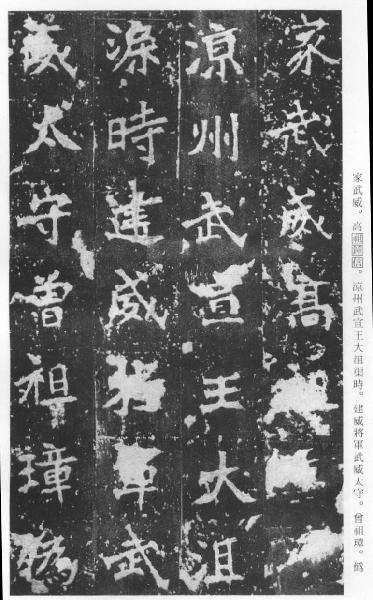 家武威高祖
涼州武宣王大沮
渠時建威將軍武
威太守曾祖璋僞
家武威。高祖鍾信。涼州武宣王大沮渠時。建威將軍武威太守。曾祖璋。僞